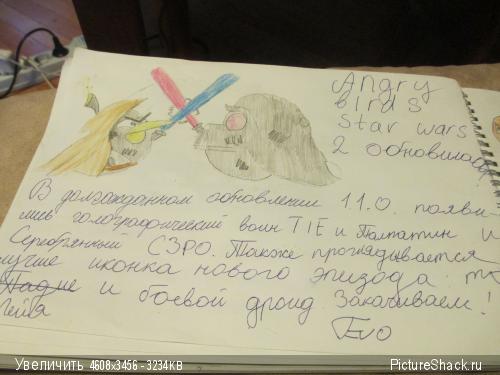 Angry
birds
star wars
2 обновилась
В долгожданном обновлении 1.1.0. появи-
лись голографический воин TIE и Палпатин и
Серебрянный C3PO. Также проглядывается
лучше иконка нового эпизода: то
Падме и боевой дроид. Закачиваем!
Лейя
Evo
Увеличить 4608x3456 - 3234KB
PictureShack.ru